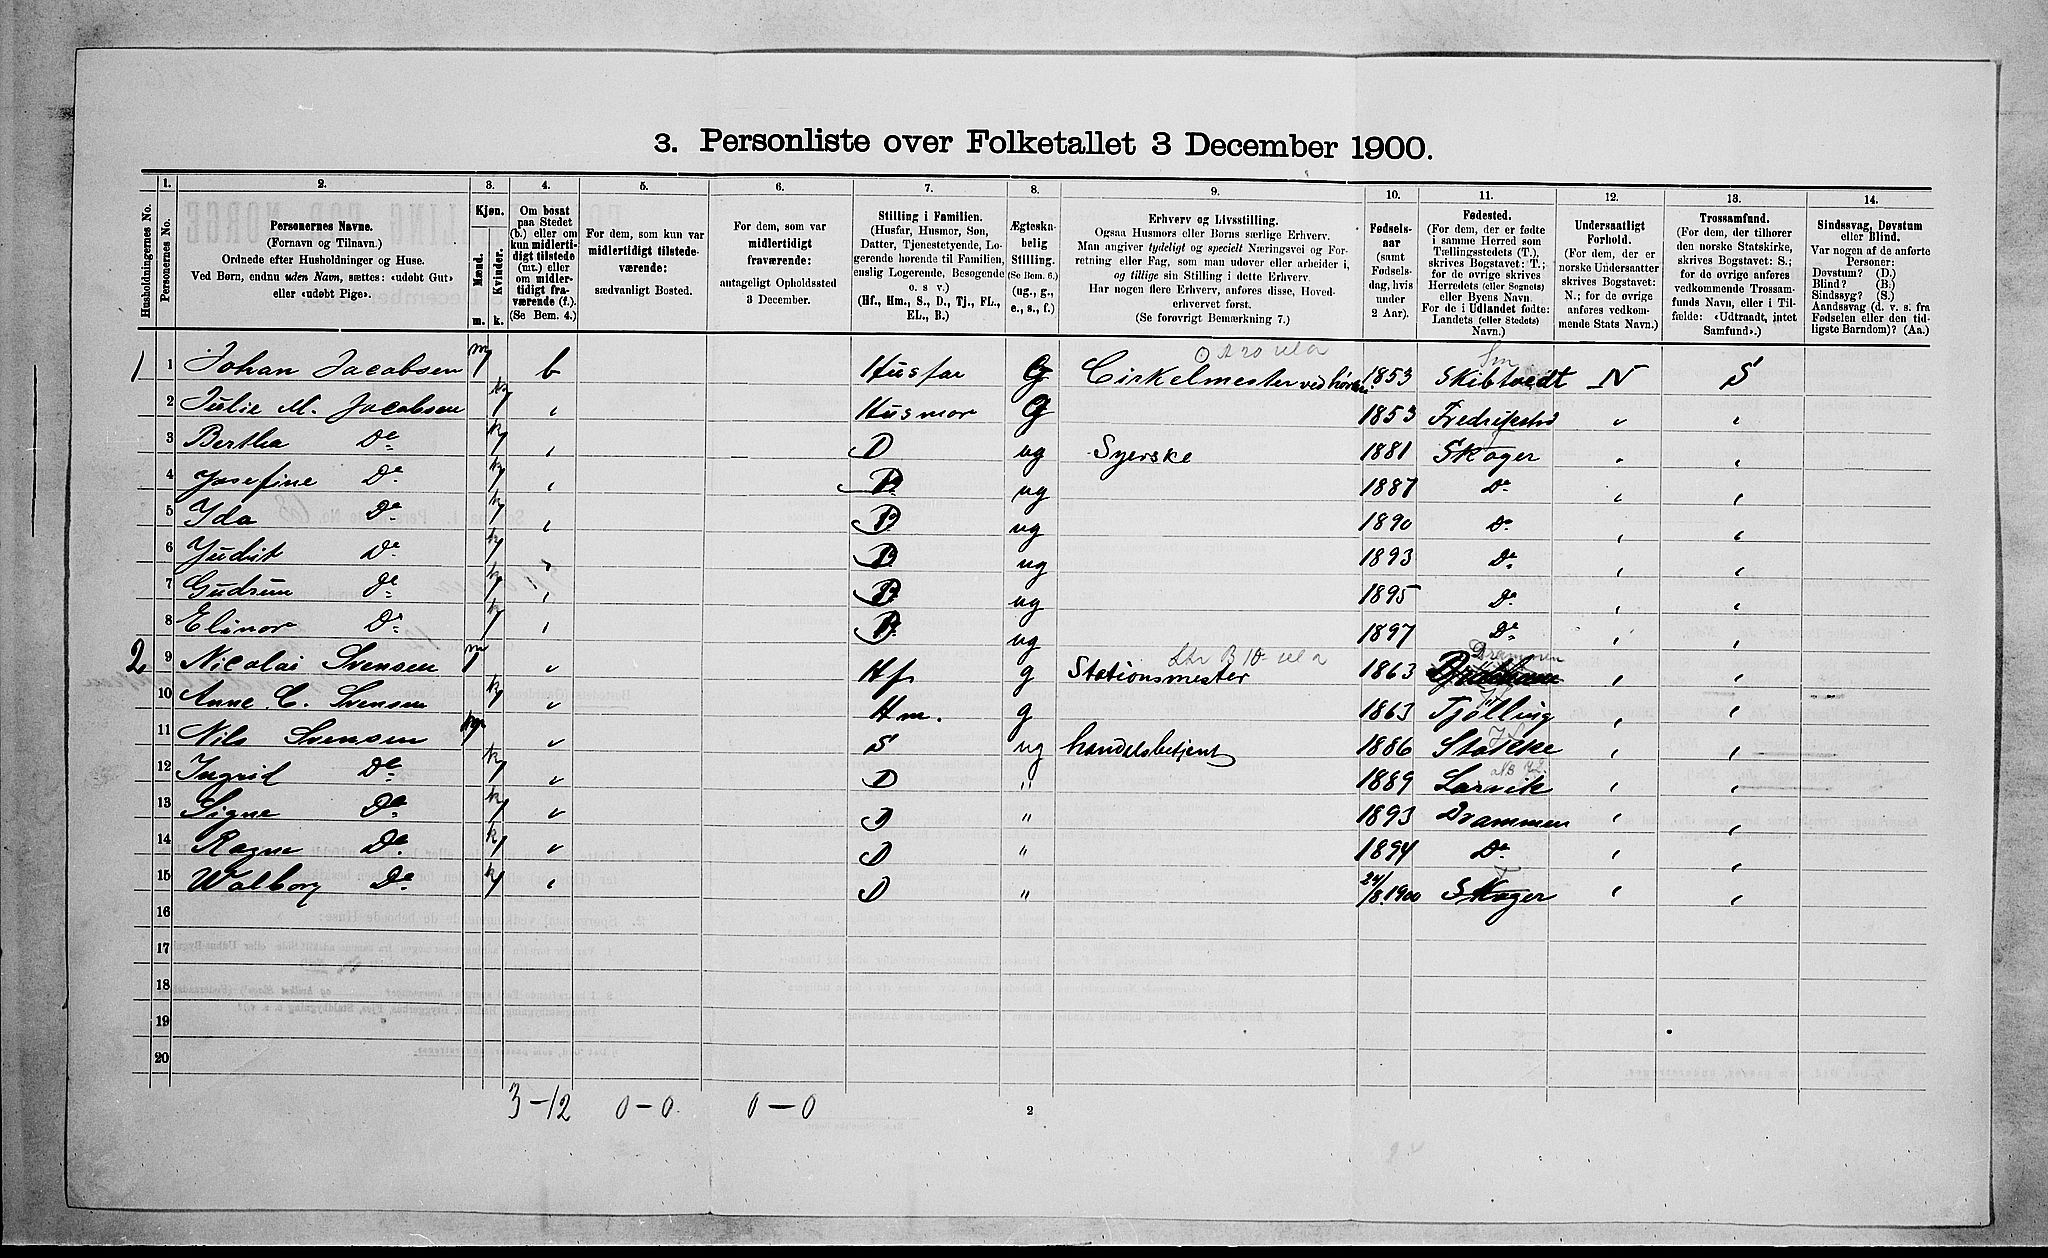 3. Personliste over Folketallet 3 December 1900.
Husholdningernes No.
1. Personernes No.
2. Personernes Navne.
(Fornavn og Tilnavn.)
Ordnede efter Husholdninger og Huse.
Ved Børn, endnu uden Navn, sættes: «udøbt Gut»
eller «udøbt Pige».
3. Kjøn.
Mænd. m.
Kvinder. k.
4. Om bosat
paa Stedet
(b.) eller om
kun midlerti-
digt tilstede
(mt.) eller
om midler-
tidigt fra-
værende (f.).
(Se Bem. 4.)
5. For dem, som kun var
midlertidigt tilstede-
værende:
sædvanligt Bosted.
6. For dem, som var
midlertidigt
fraværende:
antageligt Opholdssted
3 December.
7. Stilling i Familien.
(Husfar, Husmor, Søn,
Datter, Tjenestetyende, Lo-
gerende hørende til Familien,
enslig Logerende, Besøgende
o. s v.)
(Hf., Hm., S., D., Tj., FL.,
EL., B.)
8. Ægteska-
belig
Stilling.
(Se Bem. 6.)
(ug., g.,
e., s., f.)
9. Erhverv og Livsstilling.
Ogsaa Husmors eller Børns særlige Erhverv.
Man angiver tydeligt og specielt Næringsvei og For-
retning eller Fag, som man udøver eller arbeider i,
og tillige sin Stilling i dette Erhverv.
Har nogen flere Erhverv, anføres disse, Hoved-
erhvervet først.
(Se forøvrigt Bemærkning 7.)
10. Fødsels-
aar
(samt
Fødsels-
dag, hvis
under
2 Aar).
11. Fødested.
(For dem, der er fødte
i samme Herred som
Tællingsstedets (T.),
skrives Bogstavet: T.;
for de øvrige skrives
Herredets (eller Sognets)
eller Byens Navn.
For de i Udlandet fødte:
Landets (eller Stedets)
Navn.)
12. Undersaatligt
Forhold.
(For dem, der er
norske Undersaatter
skrives Bogstavet:
N.; for de øvrige
anføres vedkom-
mende Stats Navn.)
13. Trossamfund.
(For dem, der tilhører
den norske Statskirke,
skrives Bogstavet: S.;
for de øvrige anføres
vedkommende Trossam-
funds Navn, eller i Til-
fælde: «Udtraadt, intet
Samfund».)
14. Sindssvag, Døvstum
eller Blind.
Var nogen af de anførte
Personer:
Døvstum? (D.)
Blind? (B.)
Sindssyg? (S.)
Aandssvag (d. v. s. fra
Fødselen eller den tid-
ligste Barndom)? (Aa.)
1 1 Johan Jacobsen m b Husfar G Cirkelmester ved 1853 Skibtvedt N S
2 Julie M. Jacobsen k " Husmor G 1853 Fredrikstad " "
3 Bertha Do k " D ug Syerske 1881 Skoger " "
4 Josefine Do k " D ug 1887 Do " "
5 Yda Do k " D ug 1890 Do " "
6 Judit Do k " D ug 1893 Do " "
7 Gudrun Do k " D ug 1895 Do " "
8 Elinor Do k " D ug 1897 Do " "
Drammen
2 9 Nicolai Svensen m " Hf g Stationsmester 1863 " "
10 Anne C. Svensen k " Hm. g 1863 Tjølling " "
11 Nils Svensen m " S ug handelsbetjent 1886 Stokke " "
12 Ingrid Do k " D " 1889 Larvik " "
13 Signe Do k " D " 1893 Drammen " "
14 Ragna Do k " D " 1894 Do " "
15 Walborg Do k " D " 24/8.1900 Skoger " "
16
17
18
19
20
3-12 0-0 0-0
2